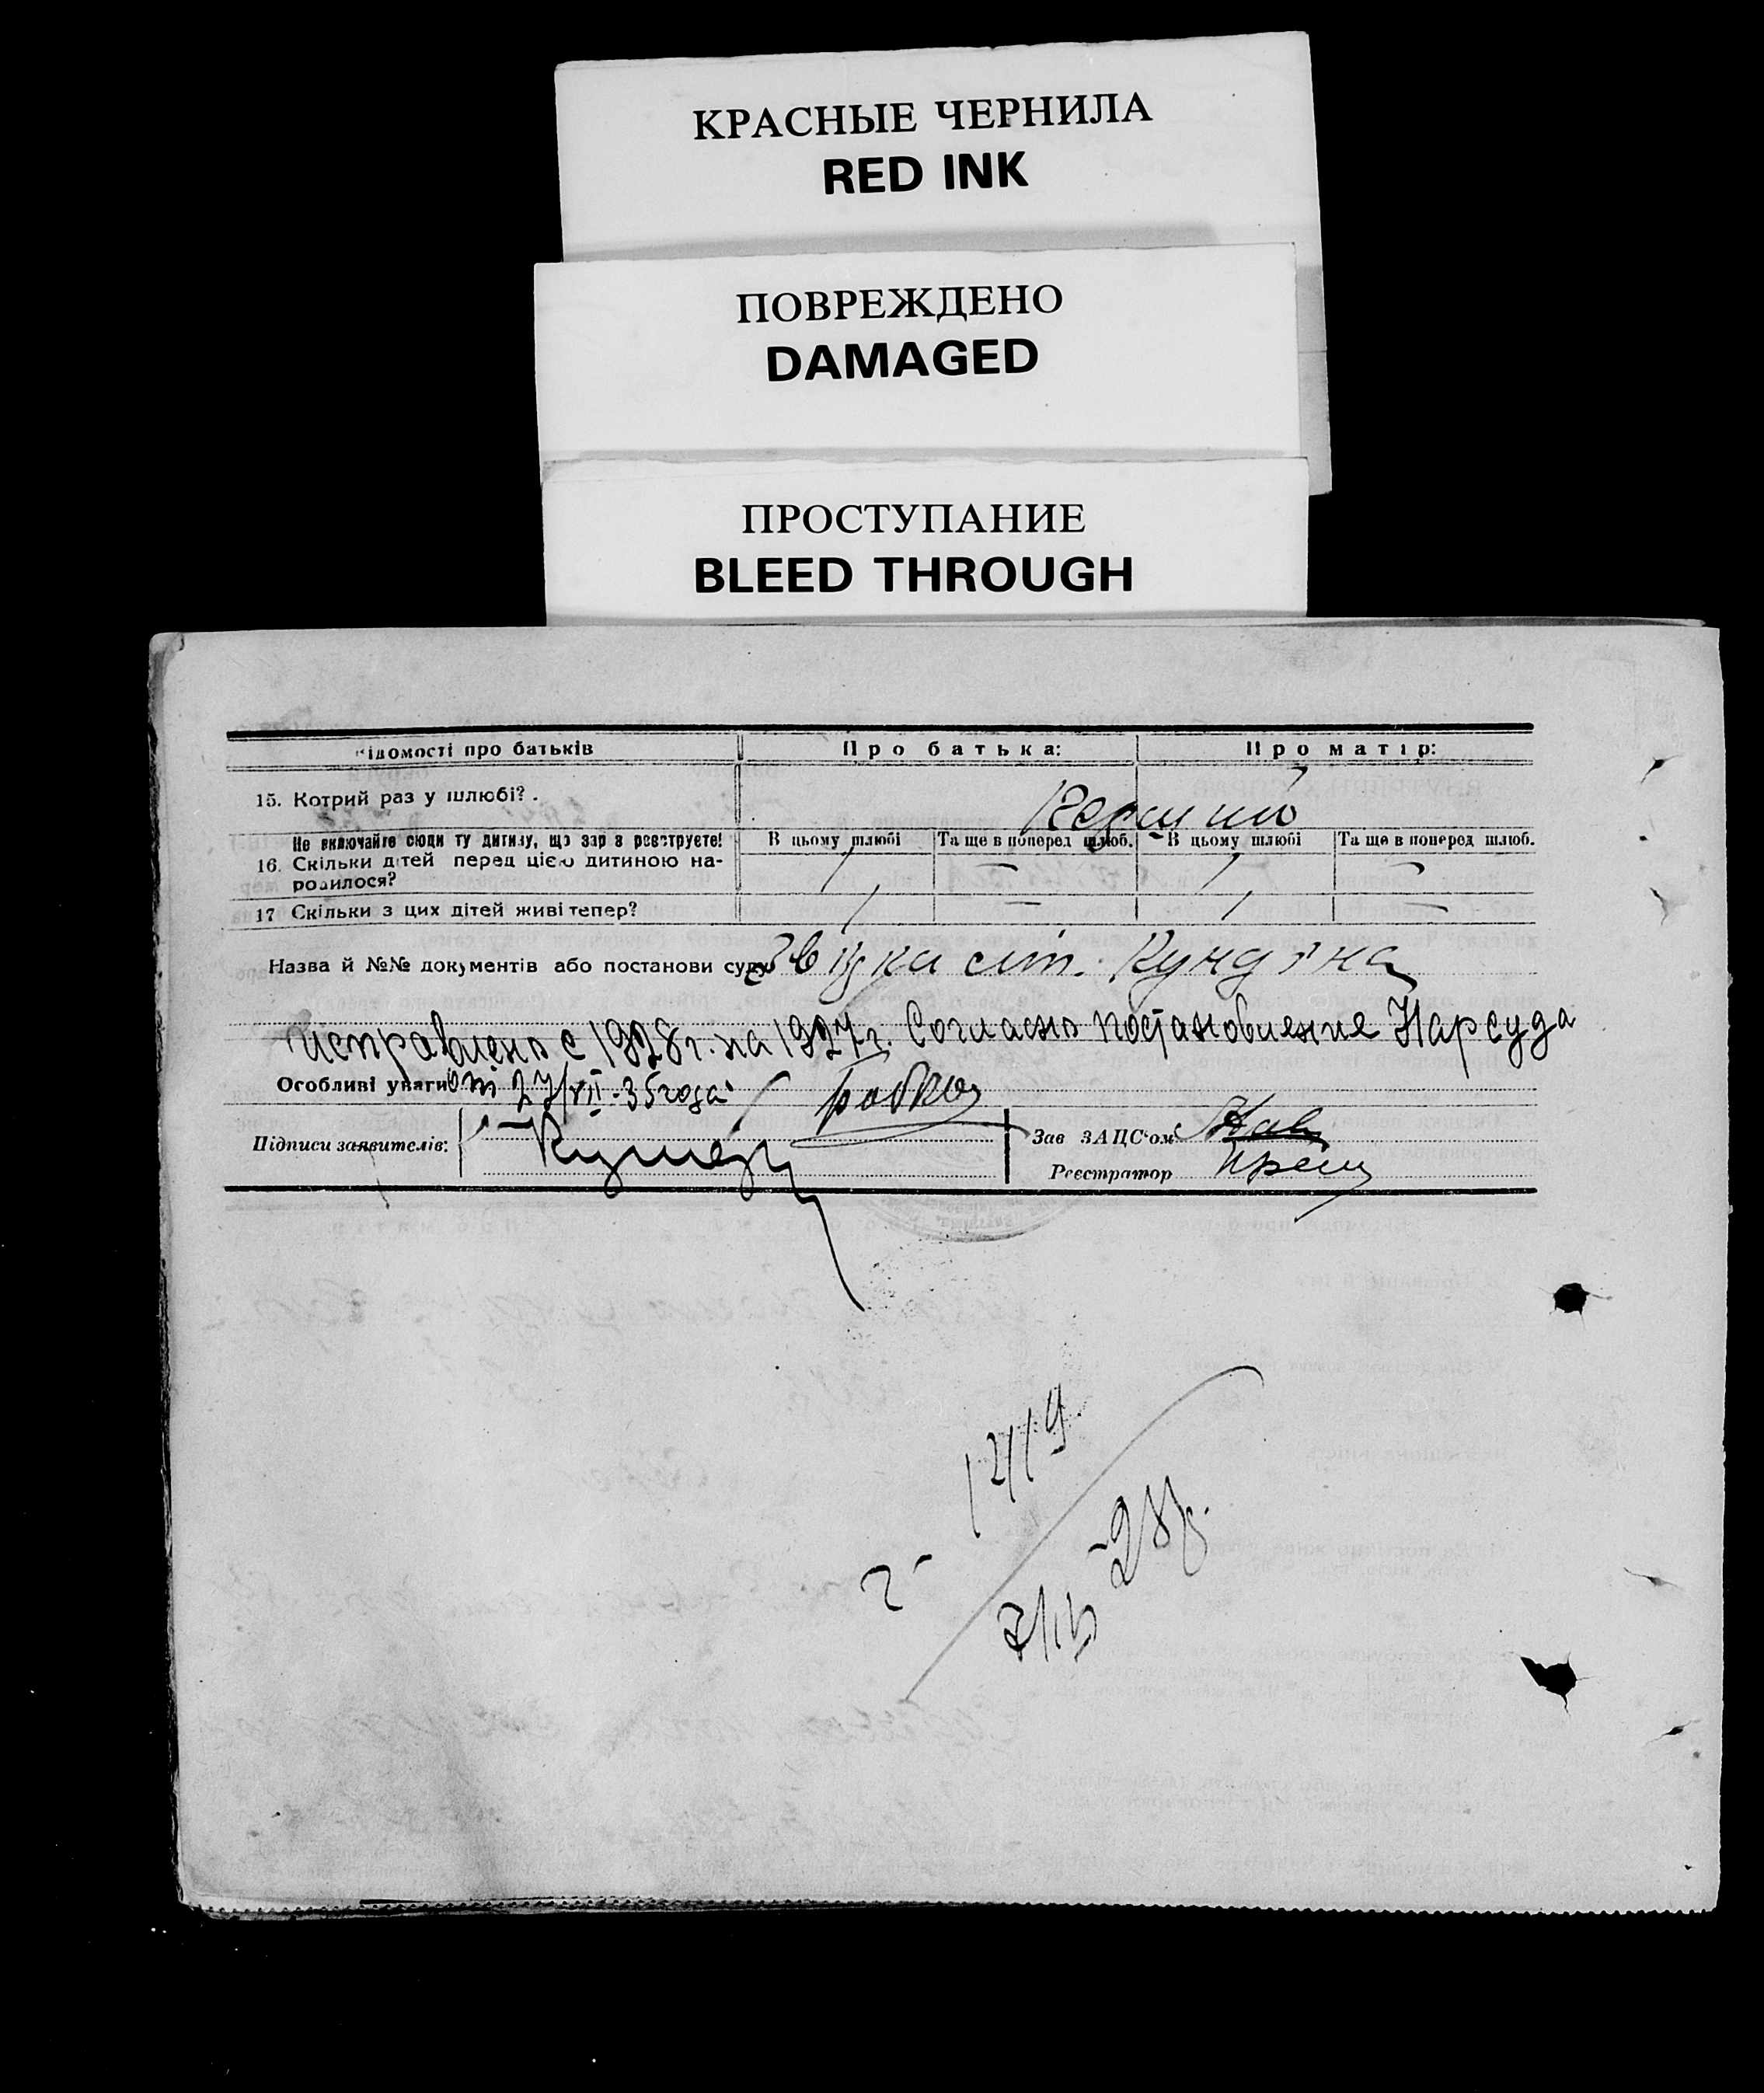 КРАСНЫЕ ЧЕРНИЛА
RED INK
ПОВРЕЖДЕНО
DAMAGED
ПРОСТУПАНИЕ
BLEED THROUGH
Відомості про батьків Про батька: Про матір:
15. Котрий раз у шлюбі?
Не включайте сюди ту дитину, що зараз реєструєте! В цьому шлюбі Та ще в поперед шлюб. В цьому шлюбі Та ще в поперед шлюб.
16. Скільки дітей перед цією дитиною на-
родилося? 1 — 1 —
17 Скільки з цих дітей живі тепер? 1 — 1 —
Назва й №№ документів або постанови суду
Исправлено с 1928 г. на 1927 г. Согласно постановление Нарсуда
Особливі уваги от 27/VII-35 года
Підписи заявителів: Зав ЗАЦС'ом
Реєстратор
1419
28 р.